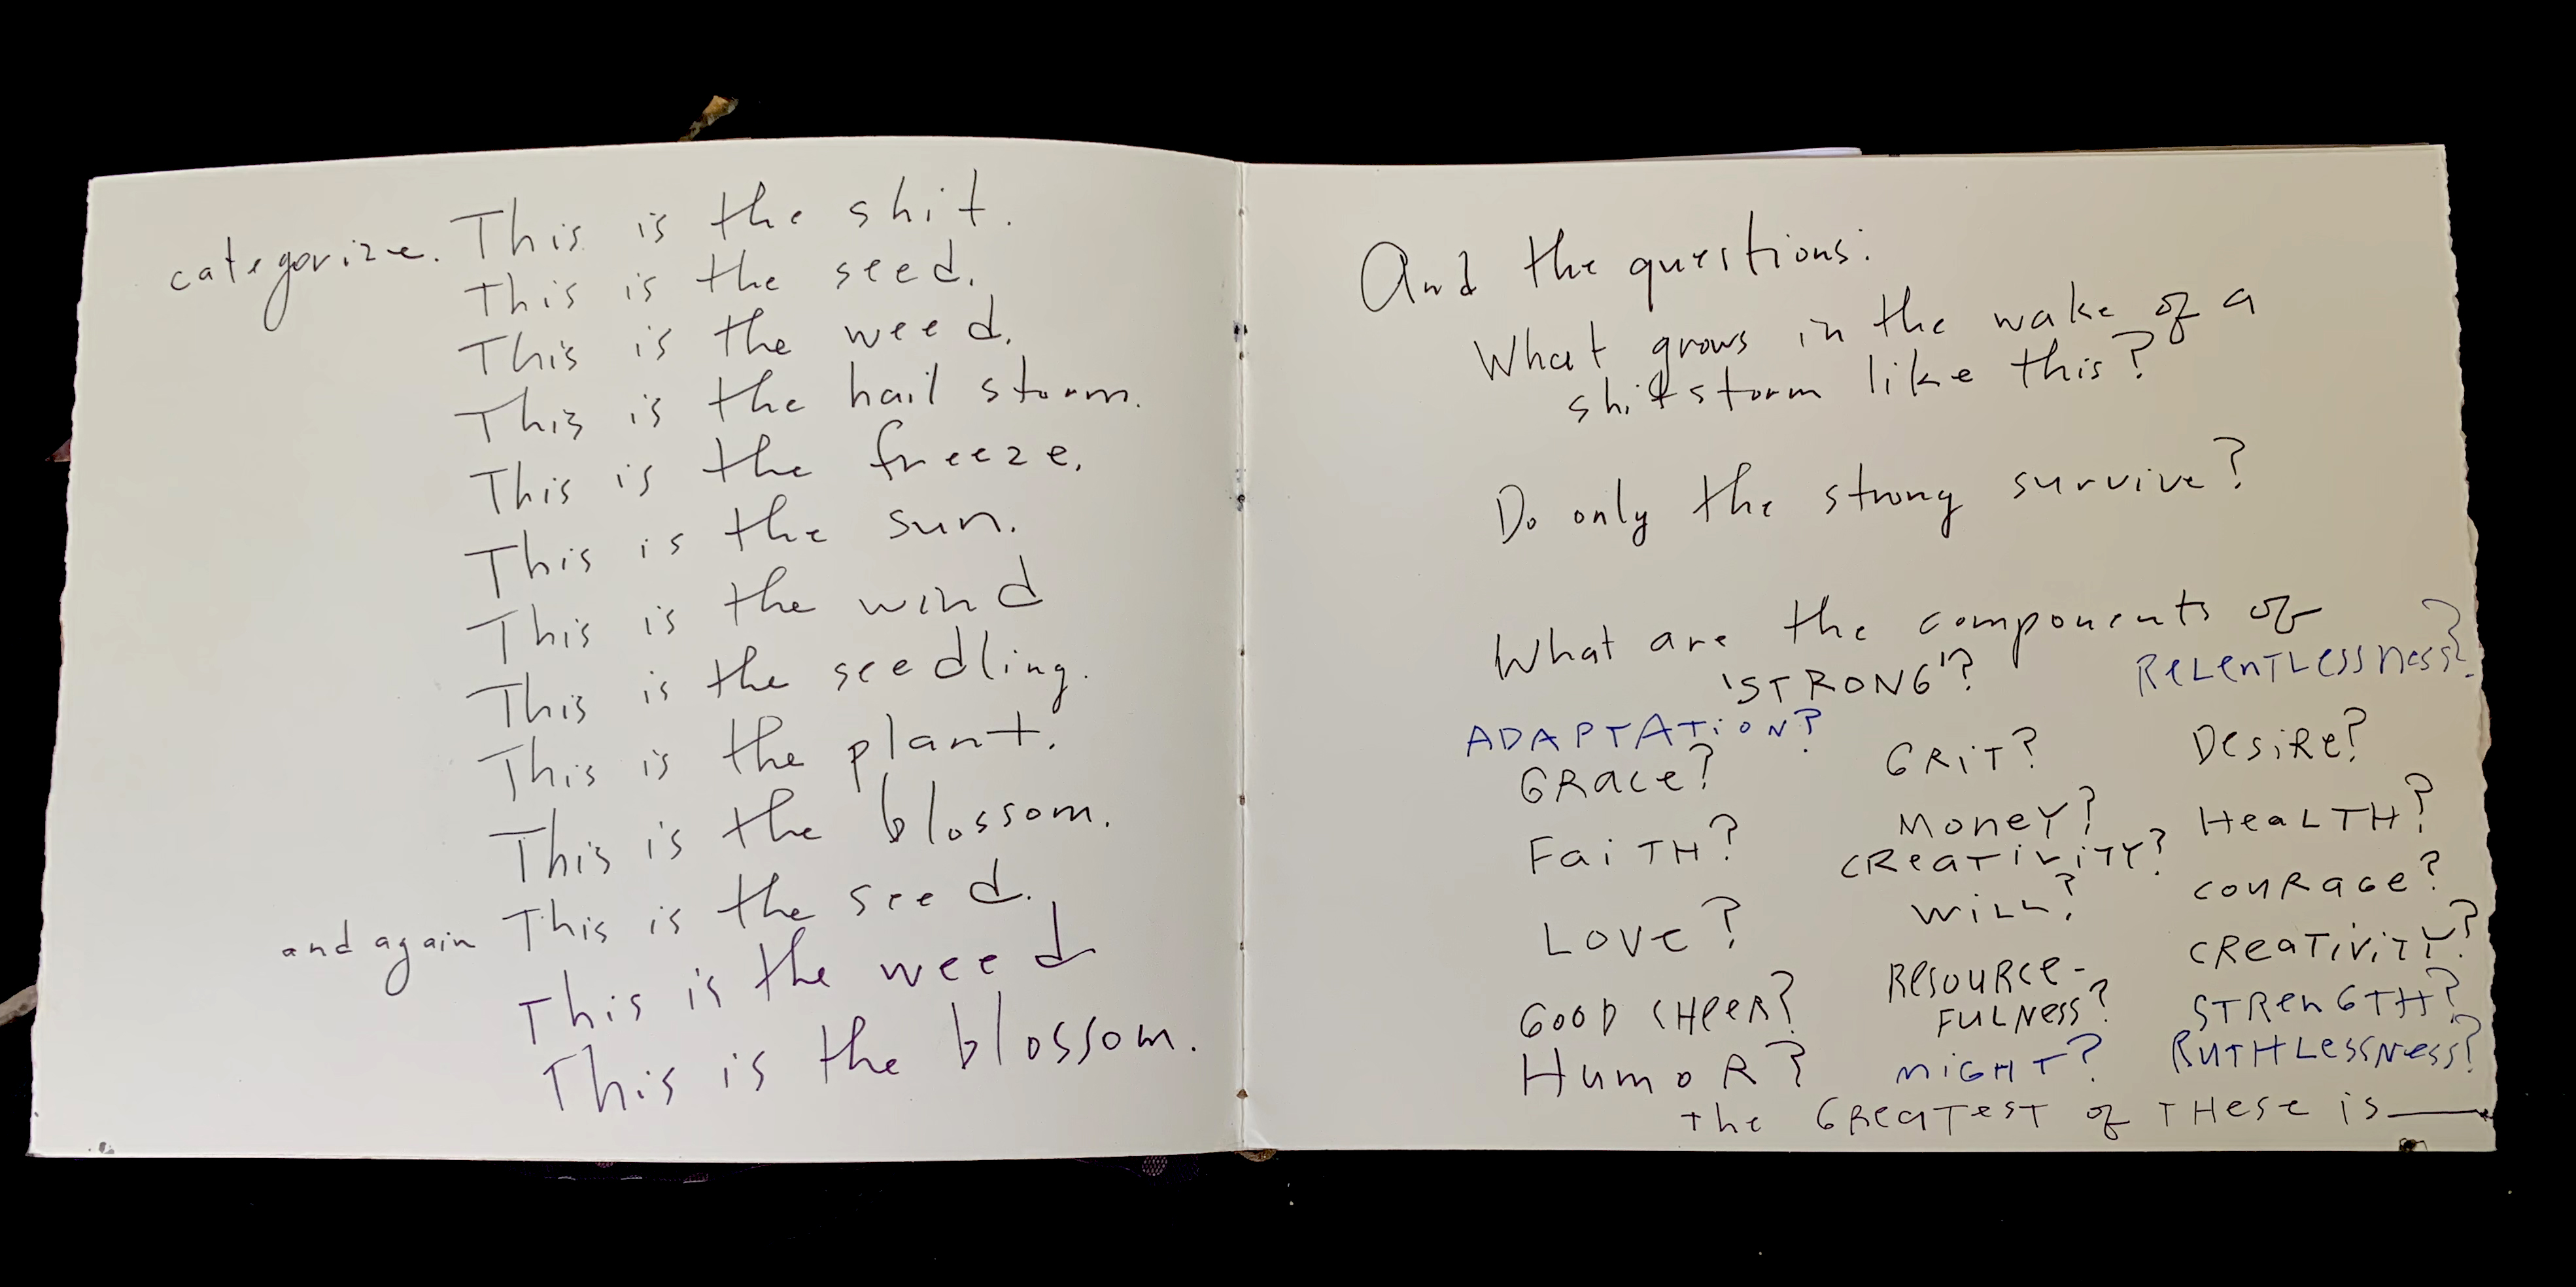 categorize. This is the shit.
This is the seed.
This is the weed.
This is the hail storm.
This is the freeze.
This is the sun.
This is the wind
This is the seedling.
This is the plant.
This is the blossom.
and again This is the seed.
This is the weed
This is the blossom.
And the questions:
What grows in the wake of a
shitstorm like this?
Do only the strong survive?
What are the components of
'STRONG'? RELENTLESSNESS?
ADAPTATION?
GRACE? GRIT? DESIRE?
FAITH? MONEY? HEALTH?
CREATIVITY?
LOVE? WILL? COURAGE?
CREATIVITY?
GOOD CHEER? RESOURCE-
FULNESS? STRENGTH?
HUMOR? MIGHT? RUTHLESSNESS?
the GREATEST of THESE is